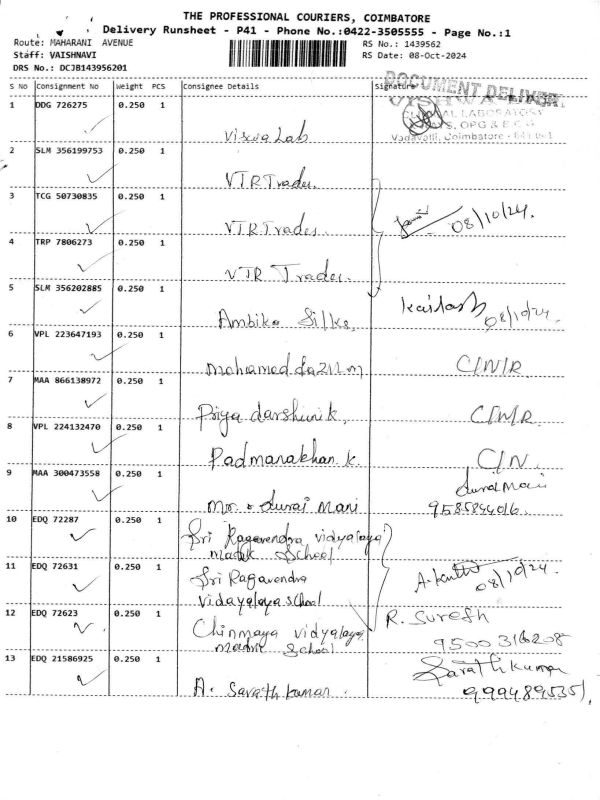 THE PROFESSIONAL COURIERS, COIMBATORE
Delivery Runsheet - P41 - Phone No.:0422-3505555 - Page No.:1
Route: MAHARANI AVENUE
RS No.: 1439562
Staff: VAISHNAVI
RS Date: 08-Oct-2024
DRS No.: DCJB143956201
S No Consignment No Weight PCS Consignee Details Signature
DOCUMENT DELIVER
1 DDG 726275 0.250 1 Viswa Lab
Vadavalli, Coimbatore
2 SLM 356199753 0.250 1 VTR Trades.
3 TCG 50730835 0.250 1 VTR Trades. 08/10/24.
4 TRP 7806273 0.250 1 VTR Trades.
5 SLM 356202885 0.250 1 Ambika Silks, Kailash 08/10/24.
6 VPL 223647193 0.250 1 Mohamed C/N/R
7 MAA 866138972 0.250 1 Priya darshini k, C/N/R.
8 VPL 224132470 0.250 1 Padmanakhan k. C/N.
9 MAA 300473558 0.250 1 Mr. Durai Mani Durai Mani
10 EDQ 72287 0.250 1 Sri Ragavendra vidyalaya
School
11 EDQ 72631 0.250 1 Sri Ragavendra 08/10/24.
vidayalaya school
12 EDQ 72623 0.250 1 Chinmaya vidyalaya R. Suresh
School 9500316208
13 EDQ 21586925 0.250 1 A. Sarath kumar. Sarath kumar